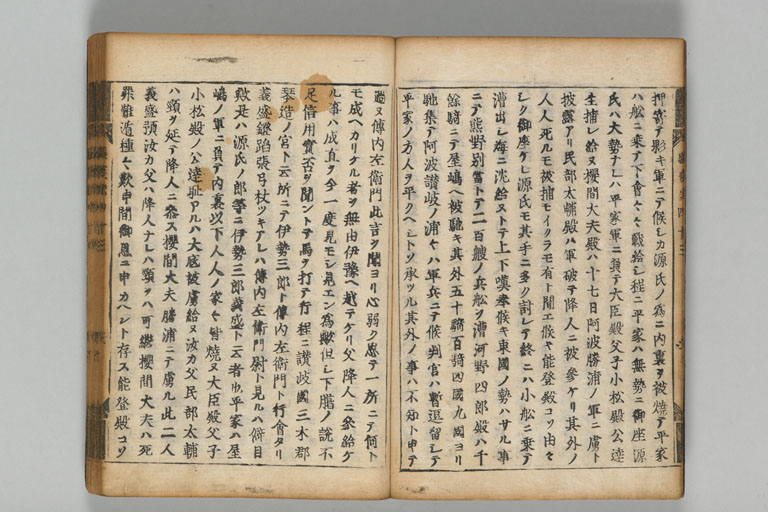 押寄テ影キ軍ニテ候シカ源氏ノ為ニ内裏ヲ被焼テ平家
ハ舩ニ乗テ下會々々戦給シ程ニ平家ハ無勢ニ御座源
氏ハ大勢ナレハ平家軍ニ負テ大臣殿父子小松殿公達
生捕レ給ヌ櫻間大夫殿ハ十七日阿波勝浦ノ軍ニ虜ト
披露アリ民部太輔殿ハ軍破テ降人ニ被参ケリ其外ノ
人人死ルモ被捕モイクラモ有ト聞エ候キ能登殿コソ由々
シク御座ケレ源氏モ其手ニ多ク討レテ終ニハ小舩ニ乗テ
漕出シ海ニ沈給ヌトテ上下嘆来候キ東國ノ勢ハサル事
ニテ熊野別當トテ二百艘ノ兵舩ヲ漕河野四郎殿ハ千
餘騎ニテ屋嶋ヘ被馳キ其外五十騎百騎四國九國ヨリ
馳集テ阿波讃岐ノ浦々ハ軍兵ニテ候判官ハ暫逗留シテ
平家ノ方人ヲ平クヘシトソ承ツル其外ノ事ハ不知ト申テ
過ヌ傳内左衛門此言ヲ聞ヨリ心弱ク思テ一所ニテ何ト
モ成ヘカリケル者ヲ無由伊豫ヘ越テケリ父降人ニ参給ケ
ル事ハ成直ヲ今一度見モシ見エン為歟但シ下臈ノ説不
足信用實否ヲ聞ントテ馬ヲ打テ行程ニ讃岐國三木郡
琴造ノ宮ト云所ニテ伊勢三郎ト傳内左衛門ト行會タリ
義盛鐙踏張弓杖ツキアレハ傳内左衛門尉ト見ルハ僻目
歟是ハ源氏ノ郎等ニ伊勢三郎義盛ト云者也平家ハ屋
嶋ノ軍ニ負テ内裏以下人人ノ家々皆焼ヌ大臣殿父子
小松殿ノ公達耻アルハ大底被虜給ヌ汝カ父民部太輔
ハ頸ヲ延テ降人ニ参ス櫻間大夫勝浦ニテ虜ル此二人
義盛預汝カ父ハ降人ナレハ頸ヲハ可継櫻間大夫ハ死
罪難遁種々歎申間御恩ニ申カヘント存ス能登殿コソ